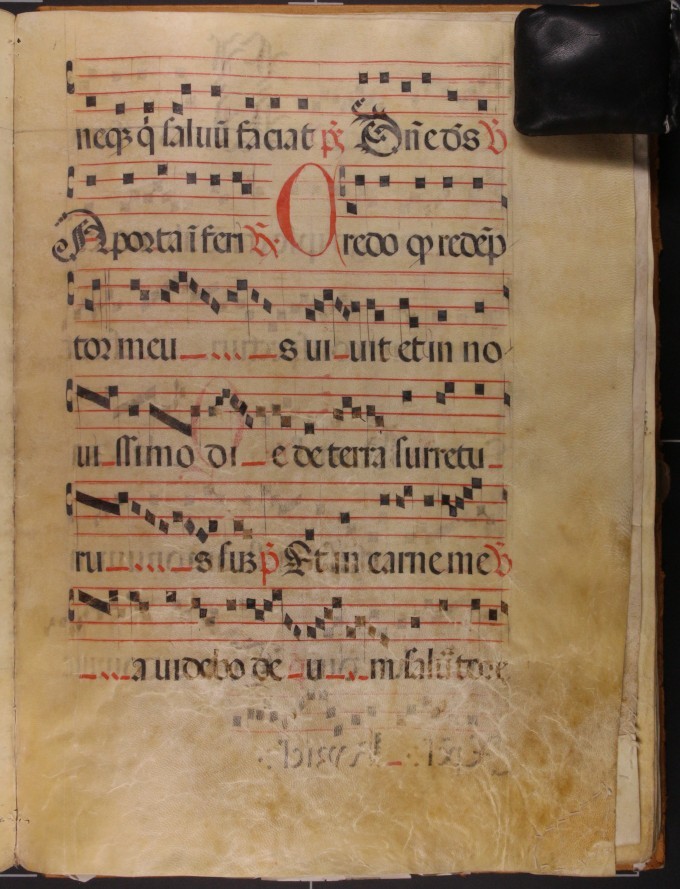 neqꝫ q̇ saluū faciat p̄s Dn̄e ds̄ ℣
A porta ī feri ℟ Credo ꝙ redēp
tor meu s ui uit et in no
ui ssimo di e de terra surrectu
ru s suꝫ p̄ Et in carne me ℣
a uidebo de u m salu tore